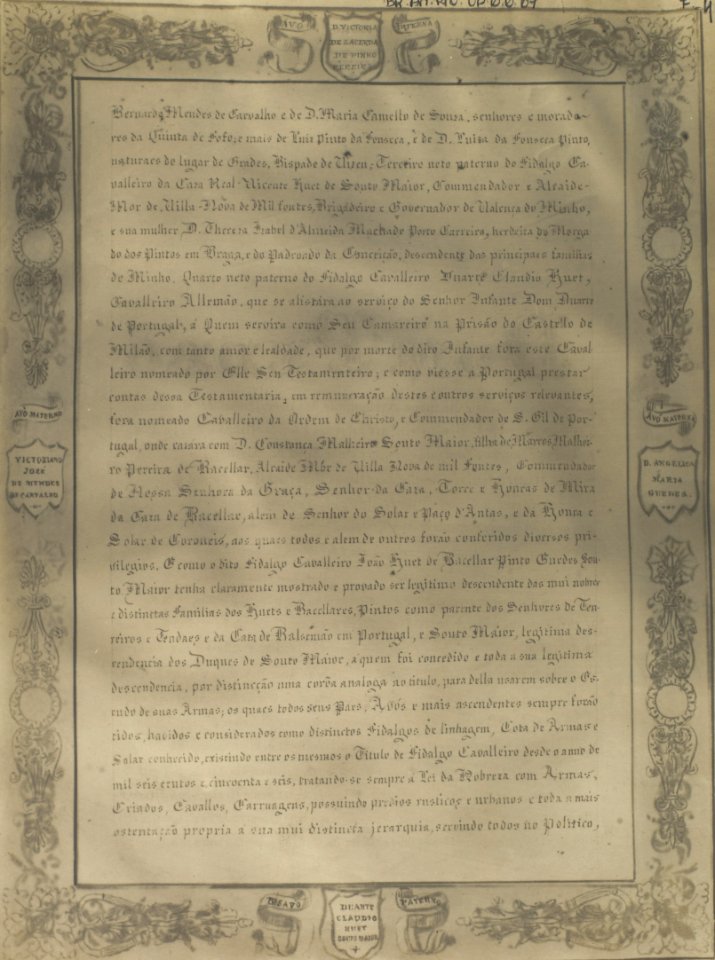 AVÓ PATERNA
D. VICTORIA
DE LACERDA
DE PINHO
PEREIRA
Bernardo Mendes de Carvalho e de D. Maria Camello de Sousa, senhores e morado-
res da Quinta de Fofo; e mais de Luiz Pinto da Fonseca, e de D. Luiza da Fonseca Pinto,
naturaes do lugar de Grades, Bispado de Viseu; Terceiro neto paterno do Fidalgo Ca-
valleiro da Caza Real Vicente Huet de Souto Maior, Commendador e Alcaide-
Mór de Villa-Nova de Mil fontes, Brigadeiro e Governador de Valença do Minho,
e sua mulher D. Thereza Izabel d'Almeida Machado Porto Carreiro, herdeira do Morga-
do dos Pintos em Braga, e do Padroado da Conceição, descendente das principaes familias
de Minho. Quarto neto paterno do Fidalgo Cavalleiro Duarte Claudio Huet,
Cavalleiro Allemão, que se alistára ao serviço do Senhor Infante Dom Duarte
de Portugal, á Quem serviro como Seu Camareiro na Prisão do Castello de
Milão, com tanto amor e lealdade, que por morte do dito Infante fora este Caval-
leiro nomeado por Elle Seu Testamenteiro; e como viesse a Portugal prestar
contas dessa Testamentaria, em remuneração destes e outros serviços relevantes,
fora nomeado Cavalleiro da Ordem de Christo, e Commendador de S. Gil de Por-
tugal, onde casara com D. Constança Malheiro Souto Maior, filha de Marcos Malhei-
ro Pereira de Bacellar, Alcaide Mór de Villa Nova de mil Fontes, Commendador
de Nossa Senhora da Graça, Senhor da Caza, Torre e Honras de Mira
da Caza de Bacellar, alem de Senhor do Solar e Paço d'Antas, e da Honra e
Solar de Coroneis, aos quaes todos e alem de outros forão conferidos diversos pri-
vilegios. E como o dito Fidalgo Cavalleiro João Huet de Bacellar Pinto Guedes Sou-
to Maior tenha claramente mostrado e provado ser legitimo descendente das mui nobres
e distinctas Familias dos Huets e Bacellares, Pintos como parente dos Senhores de Ten-
reiros e Tendaes e da Caza de Balsemão em Portugal, e Souto Maior, legitima des-
cendencia dos Duques de Souto Maior, a quem foi concedido e toda a sua legitima
descendencia, por distincção uma corôa analoga ao titulo, para della usarem sobre o Es-
cudo de suas Armas; os quaes todos seus Pais, Avós e mais ascendentes sempre forão
tidos, havidos e considerados como distinctos Fidalgos de linhagem, Cota de Armas e
Solar conhecido, existindo entre os mesmos o Titulo de Fidalgo Cavalleiro desde o anno de
mil seis centos e cincoenta e seis, tratando-se sempre á Lei da Nobreza com Armas,
Criados, Cavallos, Carruagens, possuindo predios rusticos e urbanos e toda a mais
ostentação propria a sua mui distincta jerarquia, servindo todos no Politico,
AVÔ MATERNO
VICTORIANO
JOZÉ
DE MENDES
DE CARVALHO
AVÓ MATERNA
D. ANGELICA
MARIA
GUEDES.
PATERNO
DUARTE
CLAUDIO
HUET
SOUTO MAIOR